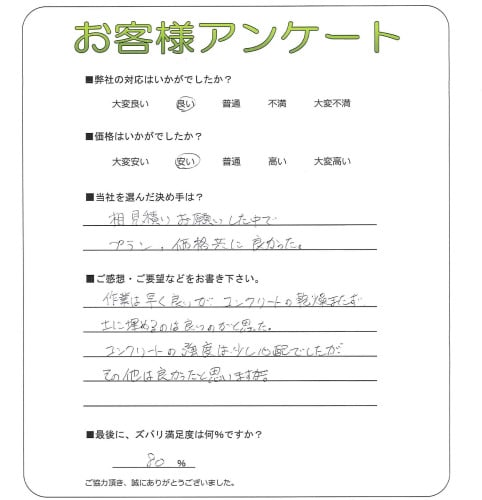 お客様アンケート
■弊社の対応はいかがでしたか？
大変良い 良い 普通 不満 大変不満
■価格はいかがでしたか？
大変安い 安い 普通 高い 大変高い
■当社を選んだ決め手は？
相見積りお願いした中で
プラン、価格共に良かった。
■ご感想・ご要望などをお書き下さい。
作業は早く良いが、コンクリートの乾燥またず
土に埋めるのは良いのかと思った。
コンクリートの強度は少し心配でしたが
その他は良かったと思います。
■最後に、ズバリ満足度は何％ですか？
80 ％
ご協力頂き、誠にありがとうございました。